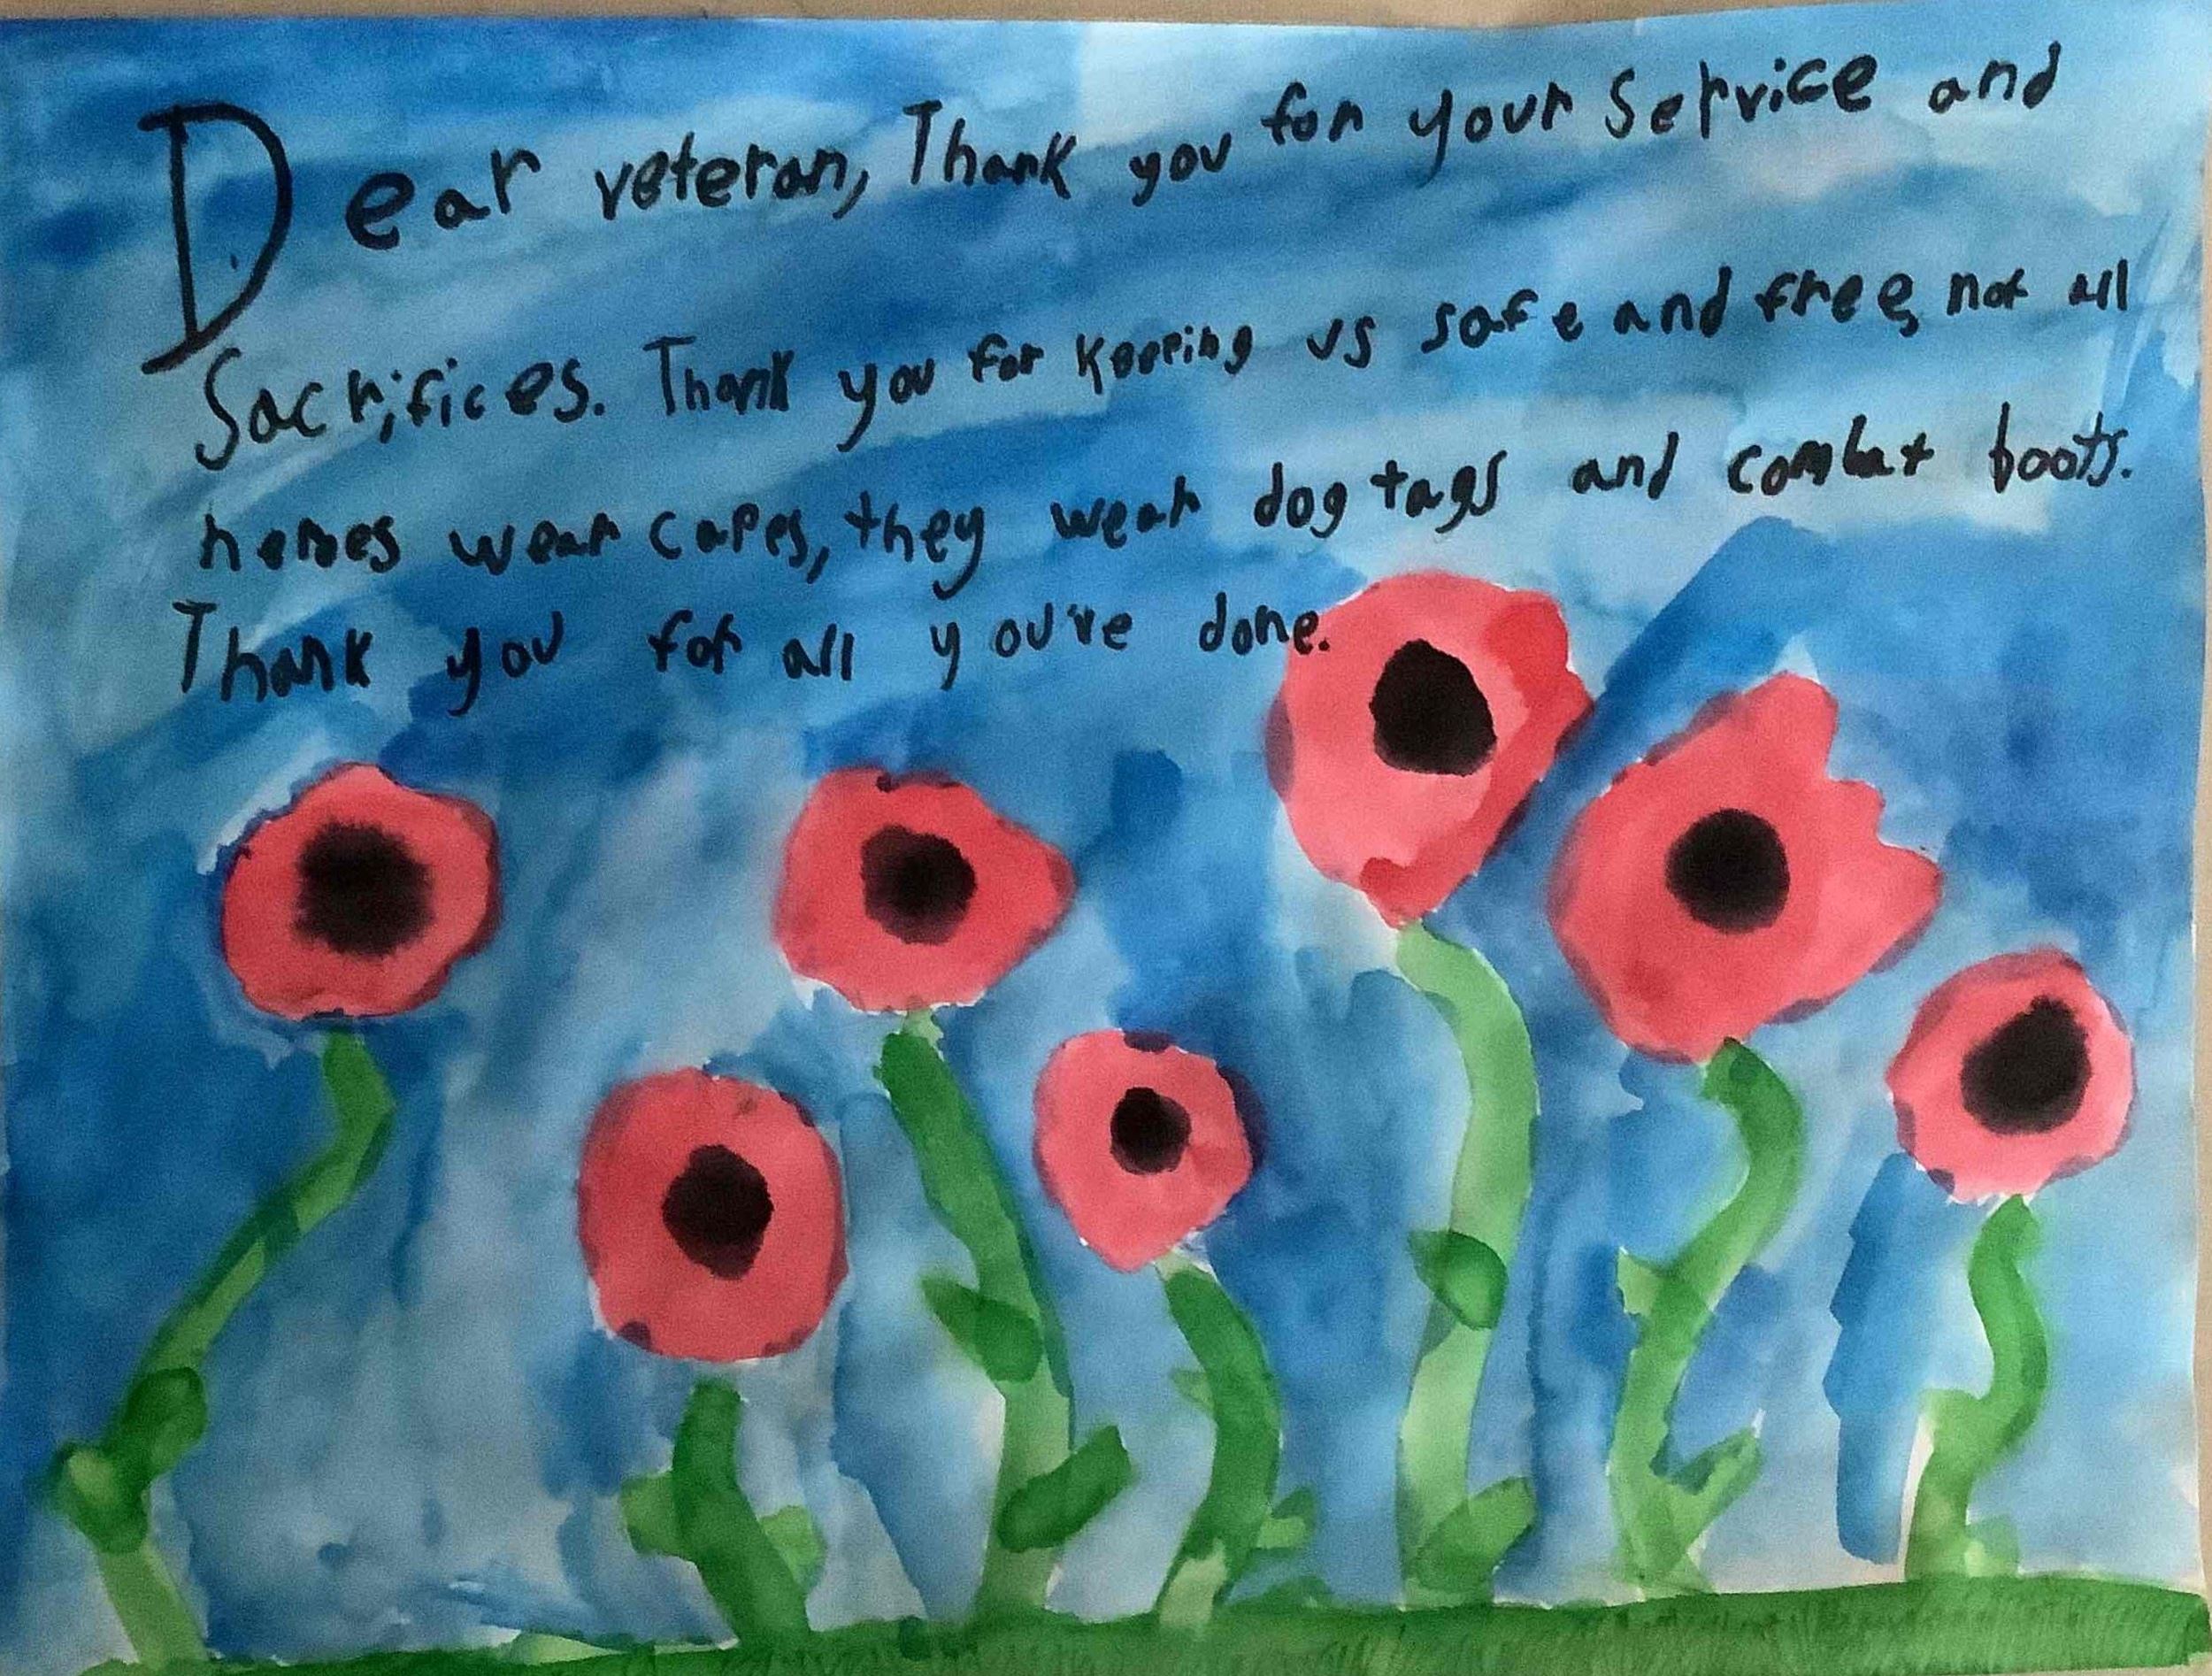 Dear veteran, Thank you for your Service and
Sacrifices. Thank you for Keeping us safe and free, not all
heroes wear capes, they wear dog tags and combat boots.
Thank you for all you've done.